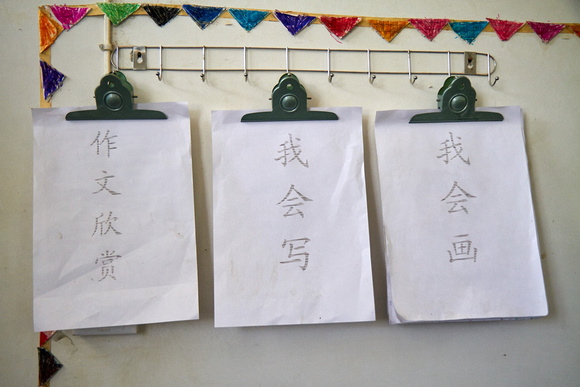 作文欣赏
我会写
我会画